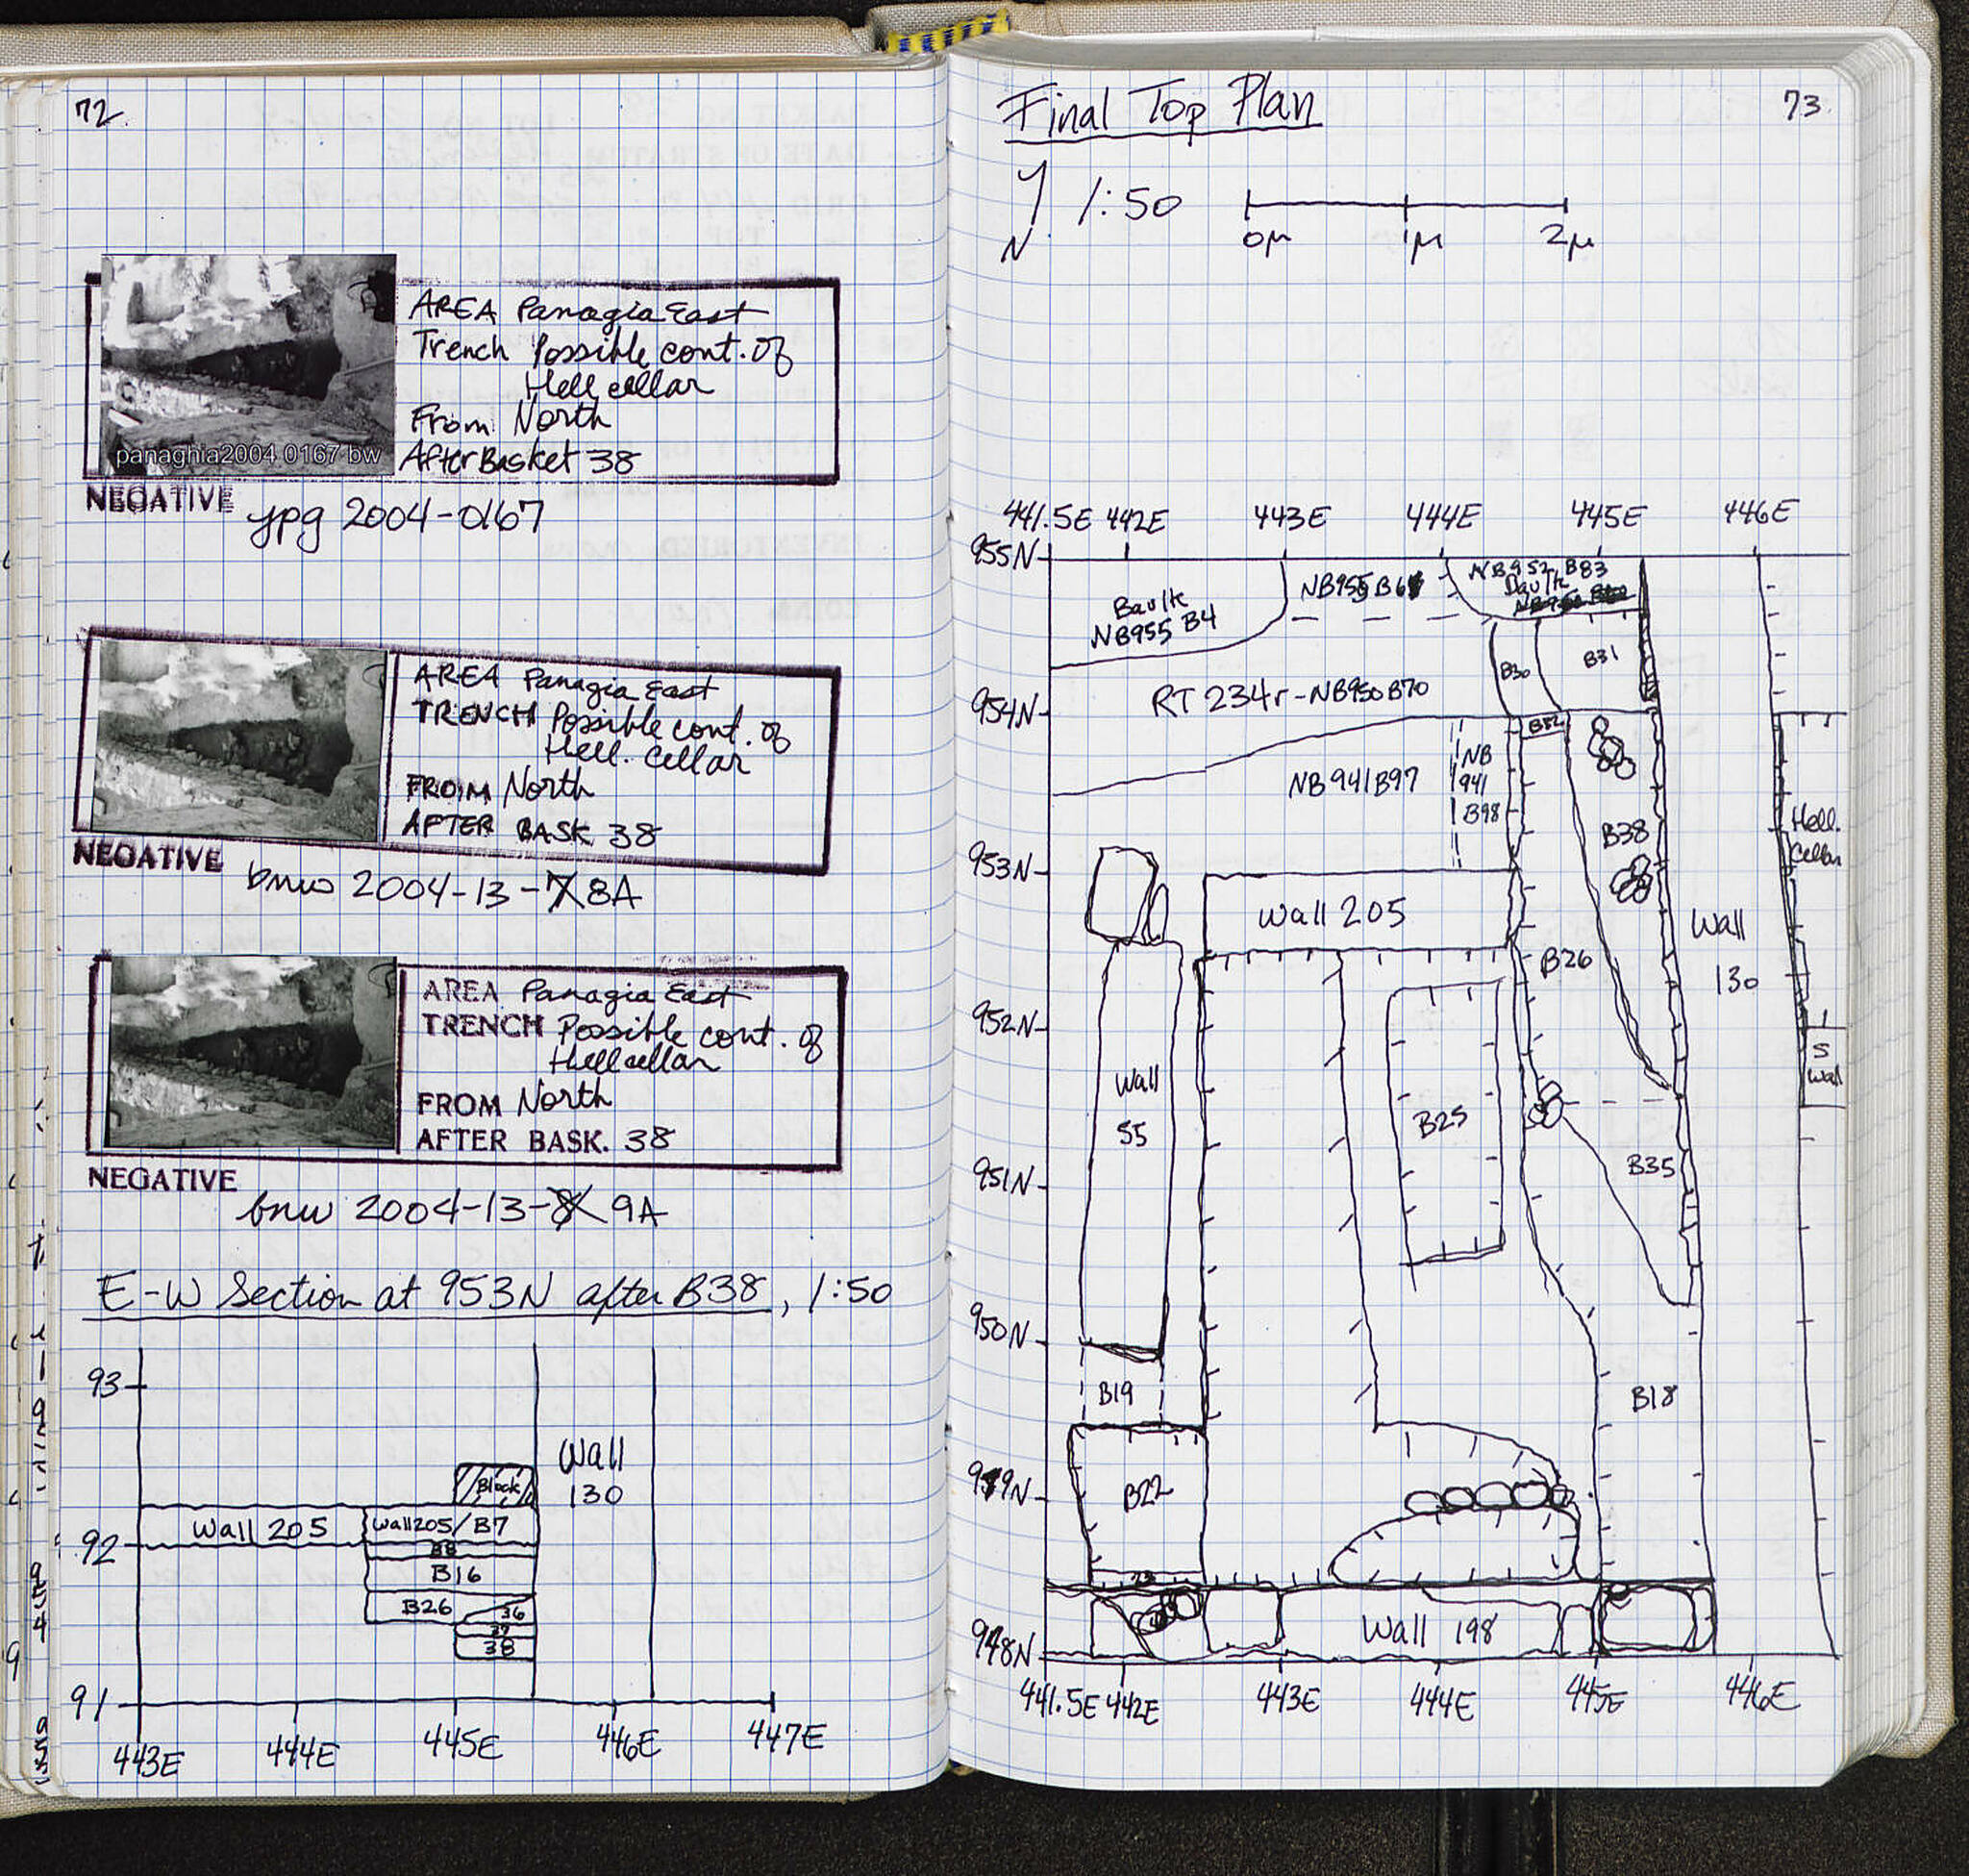 72
AREA Panagia East
Trench Possible cont. of
Hell cellar
From North
After Basket 38
panaghia2004 0167 bw
NEGATIVE jpg 2004-0167
AREA Panagia East
TRENCH Possible cont. of
Hell. Cellar
FROM North
AFTER BASK 38
NEGATIVE bnw 2004-13-7 8A
AREA Panagia East
TRENCH Possible cont. of
Hell cellar
FROM North
AFTER BASK. 38
NEGATIVE bnw 2004-13-8 9A
E-W Section at 953N after B38, 1:50
93
Wall
130
Block
Wall 205
Wall205/B7
92
B8
B16
B26
36
37
38
91
443E 444E 445E 446E 447E
Final Top Plan
73
N
1:50
0m 1m 2m
441.5E 442E 443E 444E 445E 446E
955N
Baulk
NB955 B4
NB955 B6
NB952 B83
Baulk
B30
B31
RT 234r-NB950B70
954N
B32
NB941B97
NB
941
B98
B38
Hell.
Cellar
953N
Wall 205
Wall
130
B26
952N
S
Wall
Wall
55
B25
B35
951N
950N
B19
B18
949N
B22
23
948N
Wall 198
441.5E 442E 443E 444E 445E 446E